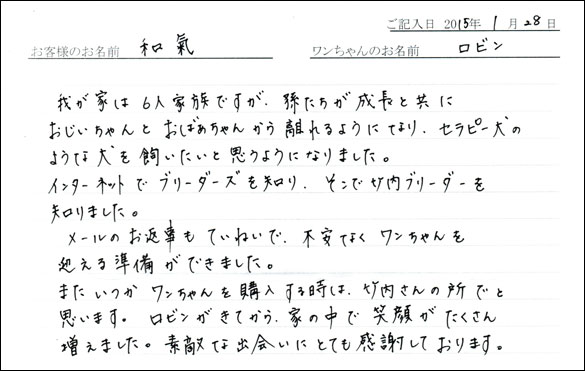 ご記入日 2015年 1月 28日
お客様のお名前 和氣 ワンちゃんのお名前 ロビン
我が家は6人家族ですが、孫たちが成長と共に
おじいちゃんとおばあちゃんから離れるようになり、セラピー犬の
ような犬を飼いたいと思うようになりました。
インターネットでブリーダーズを知り、そこで竹内ブリーダーを
知りました。
メールのお返事もていねいで、不安なくワンちゃんを
迎える準備ができました。
またいつかワンちゃんを購入する時は、竹内さんの所でと
思います。ロビンがきてから、家の中で笑顔がたくさん
増えました。素敵な出会いにとても感謝しております。